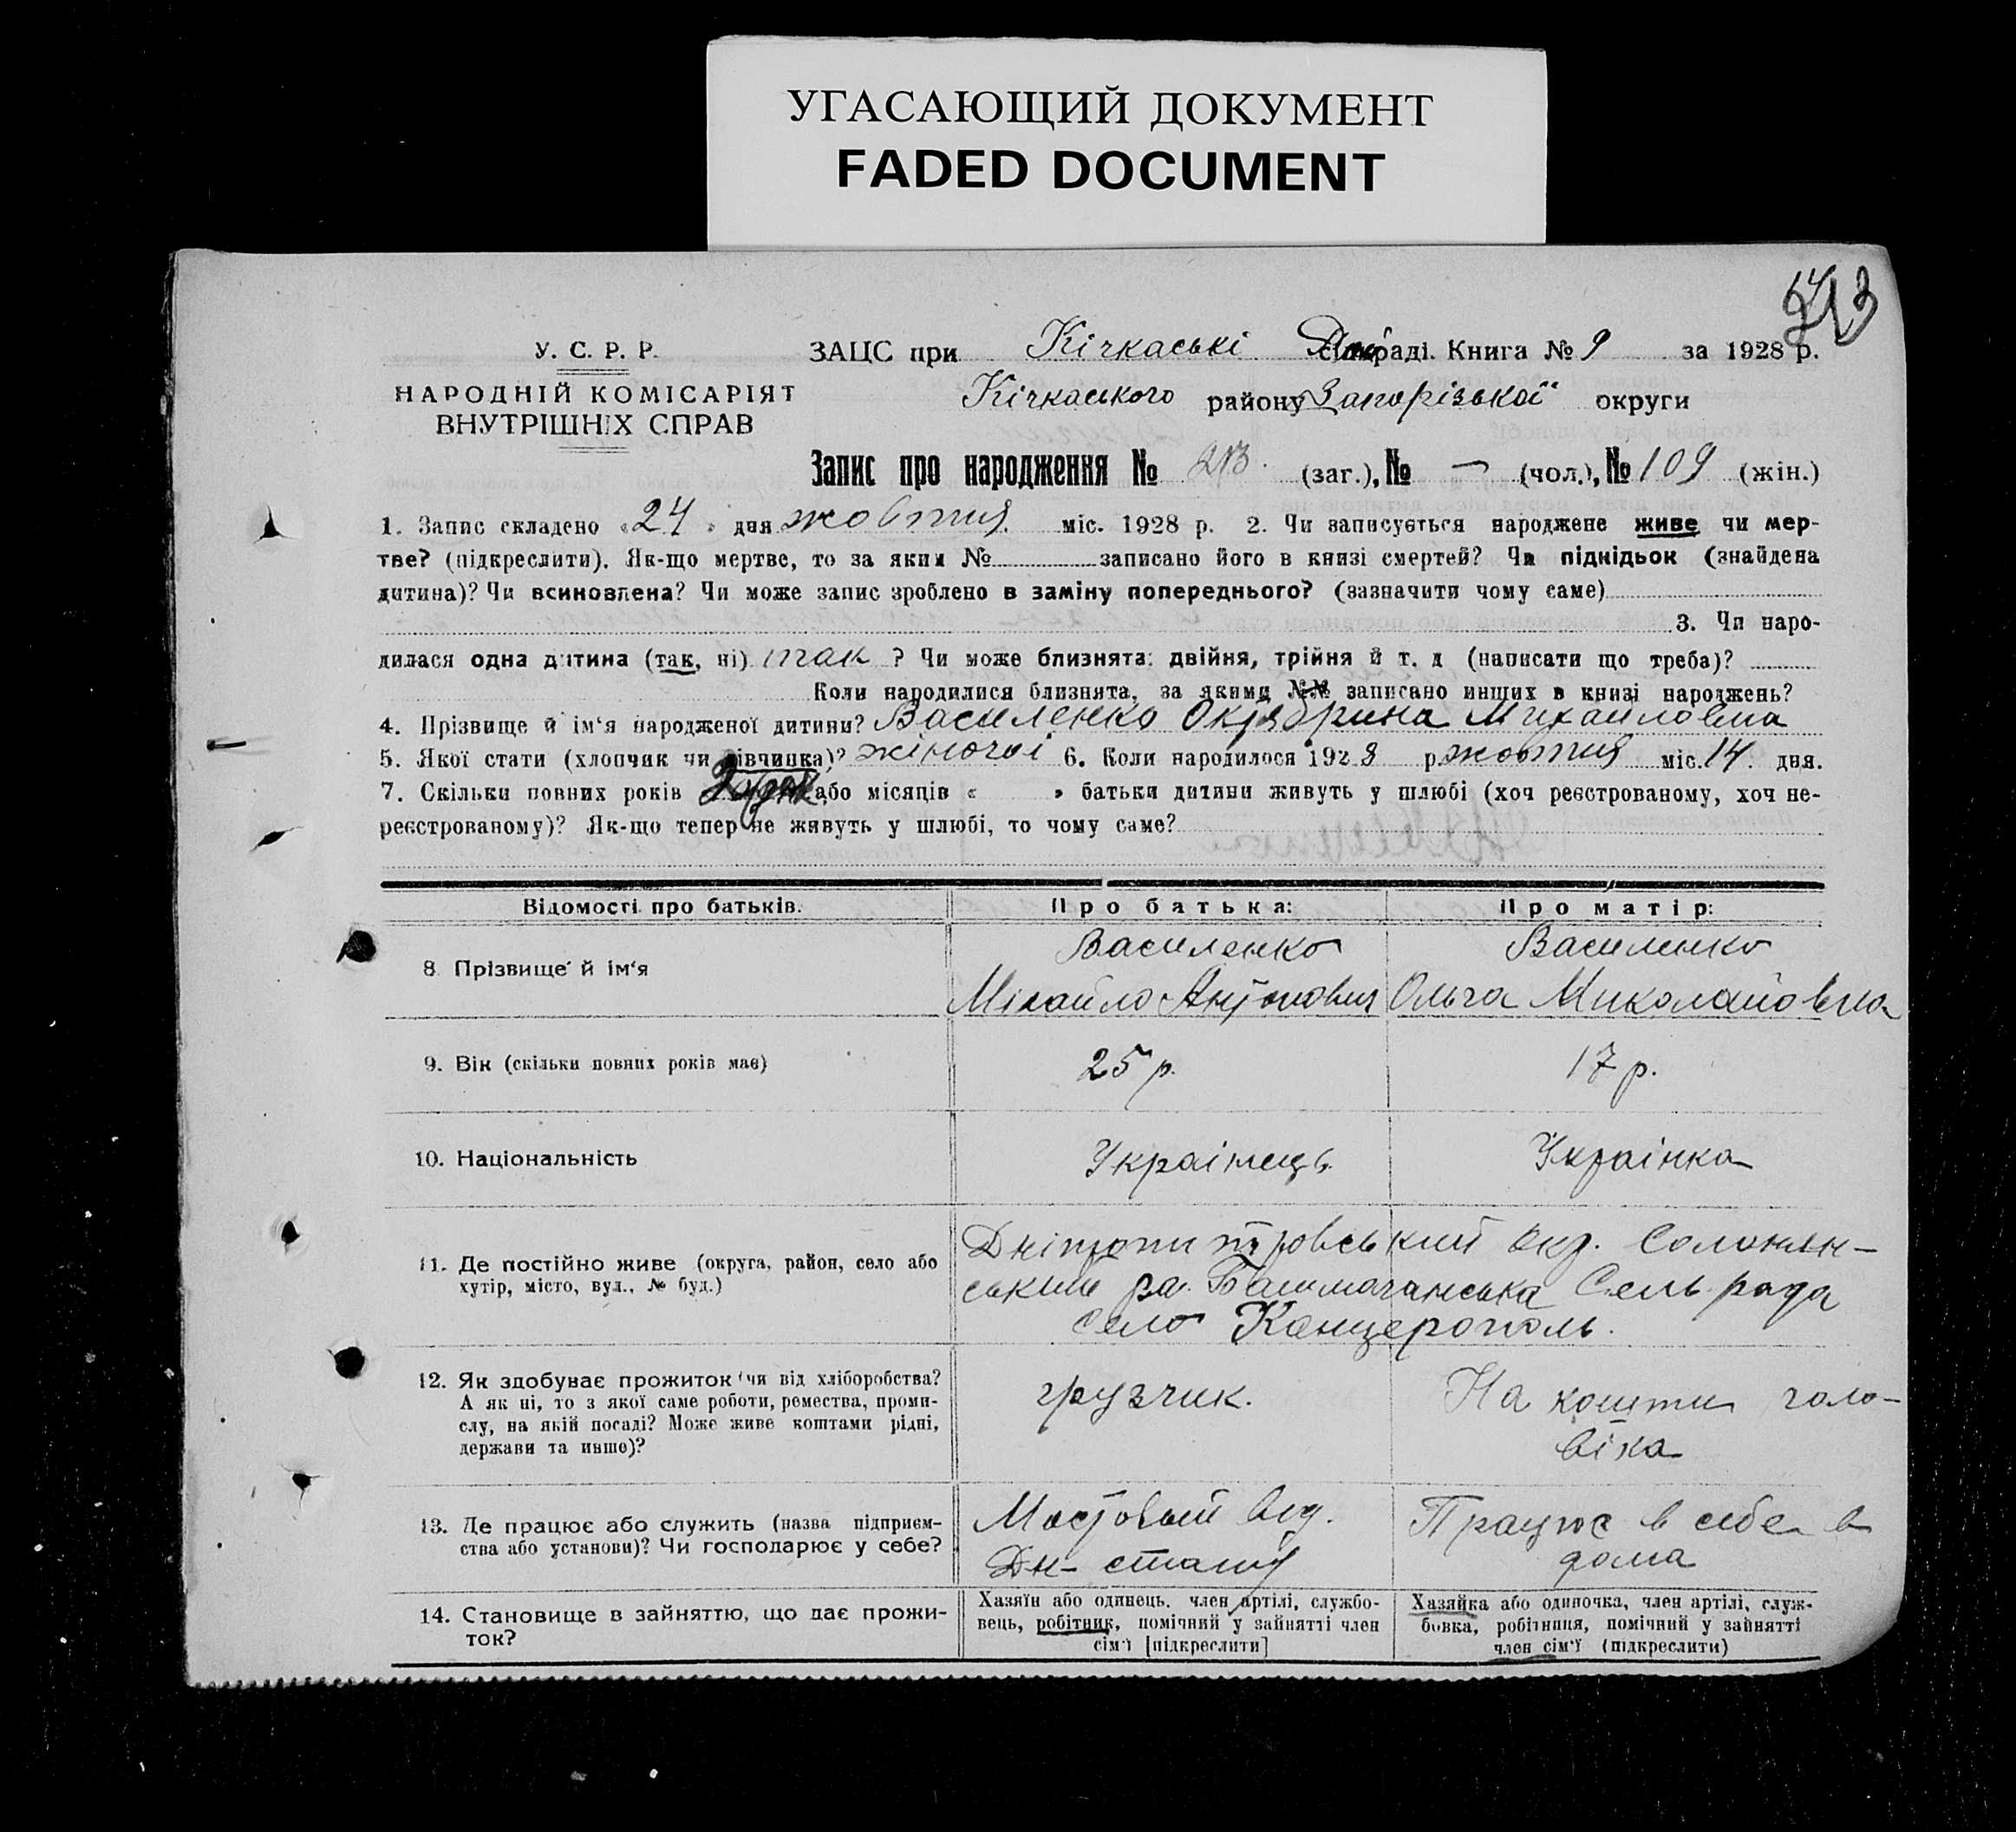 УГАСАЮЩИЙ ДОКУМЕНТ
FADED DOCUMENT
У. С. Р. Р.
НАРОДНІЙ КОМІСАРІЯТ
ВНУТРІШНІХ СПРАВ
ЗАЦС при Кічкаські раді. Книга № 9 за 1928 р.
Кічкаського району Запорізької округи
Запис про народження № 213. (заг.), № — (чол.), № 109 (жін.)
1. Запис складено «24» дня жовтня міс. 1928 р. 2. Чи записується народжене живе чи мер-
тве? (підкреслити). Як-що мертве, то за яким № записано його в книзі смертей? Чи підкідьок (знайдена
дитина)? Чи всиновлена? Чи може запис зроблено в заміну попереднього? (зазначити чому саме)
3. Чи наро-
дилася одна дитина (так, ні) так ? Чи може близнята: двійня, трійня й т. д (написати що треба)?
Коли народилися близнята, за якими №№ записано инших в книзі народжень?
4. Прізвище й ім‘я народженої дитини? Василенко Октябрина Михайловна
5. Якої стати (хлопчик чи дівчинка)? жіночої 6. Коли народилося 1928 р. жовтня міс. 14 дня.
7. Скільки повних років або місяців « » батьки дитини живуть у шлюбі (хоч реєстрованому, хоч не-
реєстрованому)? Як-що тепер не живуть у шлюбі, то чому саме?
Відомості про батьків. Про батька: Про матір:
8 Прізвище й ім‘я Василенко Василенко
Міхайло Антонович Ольга Миколайовна
9. Вік (скільки повних років має) 25 р. 17 р.
10. Національність Украінець Украінка
11. Де постійно живе (округа, район, село або
хутір, місто, вул., № буд.)
Дніпропитровський окр. Солонян-
ський ра. Башмачанська Сель. рада
село Канцерополь.
12. Як здобуває прожиток (чи від хліборобства?
А як ні, то з якої саме роботи, ремества, проми-
слу, на якій посаді? Може живе коштами рідні,
держави та инше)?
грузчик.
На кошти голо-
віка
13. Де працює або служить (назва підприєм-
ства або установи)? Чи господарює у себе?
Мостовый від.
Дн-
Працює в себе в
дома
14. Становище в зайняттю, що дає прожи-
ток?
Хазяїн або одинець. член артілі, службо-
вець, робітник, помічний у зайнятті член
сім‘ї [підкреслити]
Хазяйка або одиночка, член артілі, служ-
бовка, робітниця, помічний у зайнятті
член сім‘ї (підкреслити)